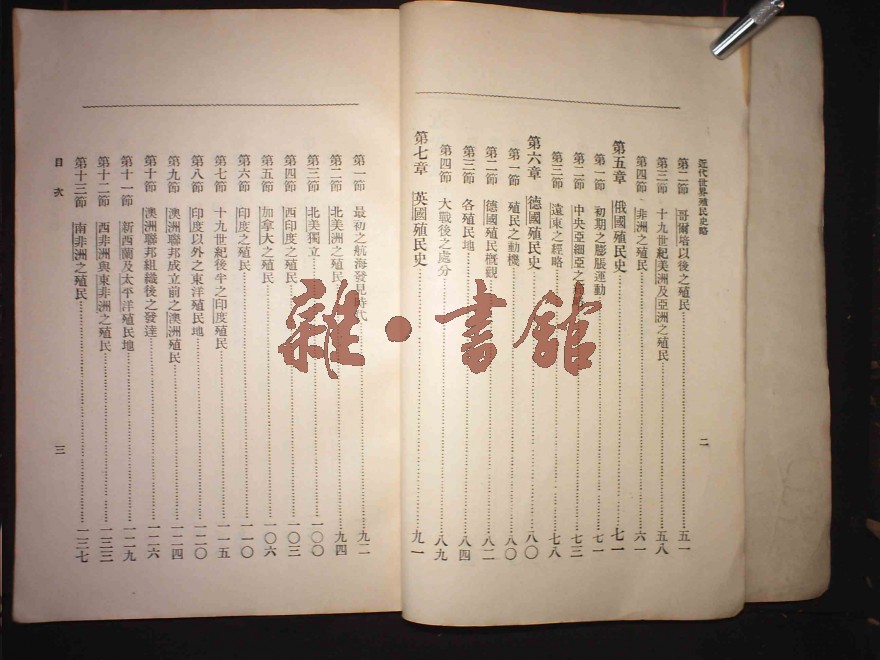 近代世界殖民史略
二
第二節 哥爾培以後之殖民 五一
第三節 十九世紀美洲及亞洲之殖民 五八
第四節 非洲之殖民 六一
第五章 俄國殖民史 七一
第一節 初期之膨脹運動 七一
第二節 中央亞細亞之 七三
第三節 遠東之經略 七八
第六章 德國殖民史 八〇
第一節 殖民之動機 八〇
第二節 德國殖民概觀 八二
第三節 各殖民地 八四
第四節 大戰後之處分 八九
第七章 英國殖民史 九一
第一節 最初之航海發見時代 九二
第二節 北美洲之殖民 九四
第三節 北美獨立 一〇〇
第四節 西印度之殖民 一〇三
第五節 加拿大之殖民 一〇六
第六節 印度之殖民 一一〇
第七節 十九世紀後半之印度殖民 一一五
第八節 印度以外之東洋殖民地 一二〇
第九節 澳洲聯邦成立前之澳洲殖民 一二四
第十節 澳洲聯邦組織後之發達 一二六
第十一節 新西蘭及太平洋殖民地 一二九
第十二節 西非洲與東非洲之殖民 一三三
第十三節 南非洲之殖民 一三七
目次
三
雜·書館